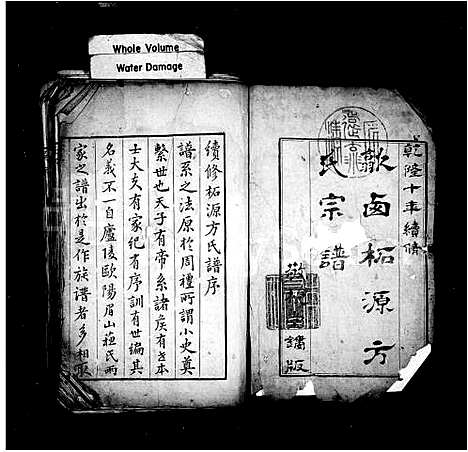 Whole Volume
Water Damage
乾隆十年續脩
歙南柘源方
氏宗譜
鐫版
續修柘源方氏譜序
譜系之法原於周禮所謂小史奠
繫世也天子有帝系諸侯有世本
士大夫有家紀有序訓有世編其
名義不一自廬陵歐陽眉山蘇氏兩
家之譜出於是作族譜者多相取